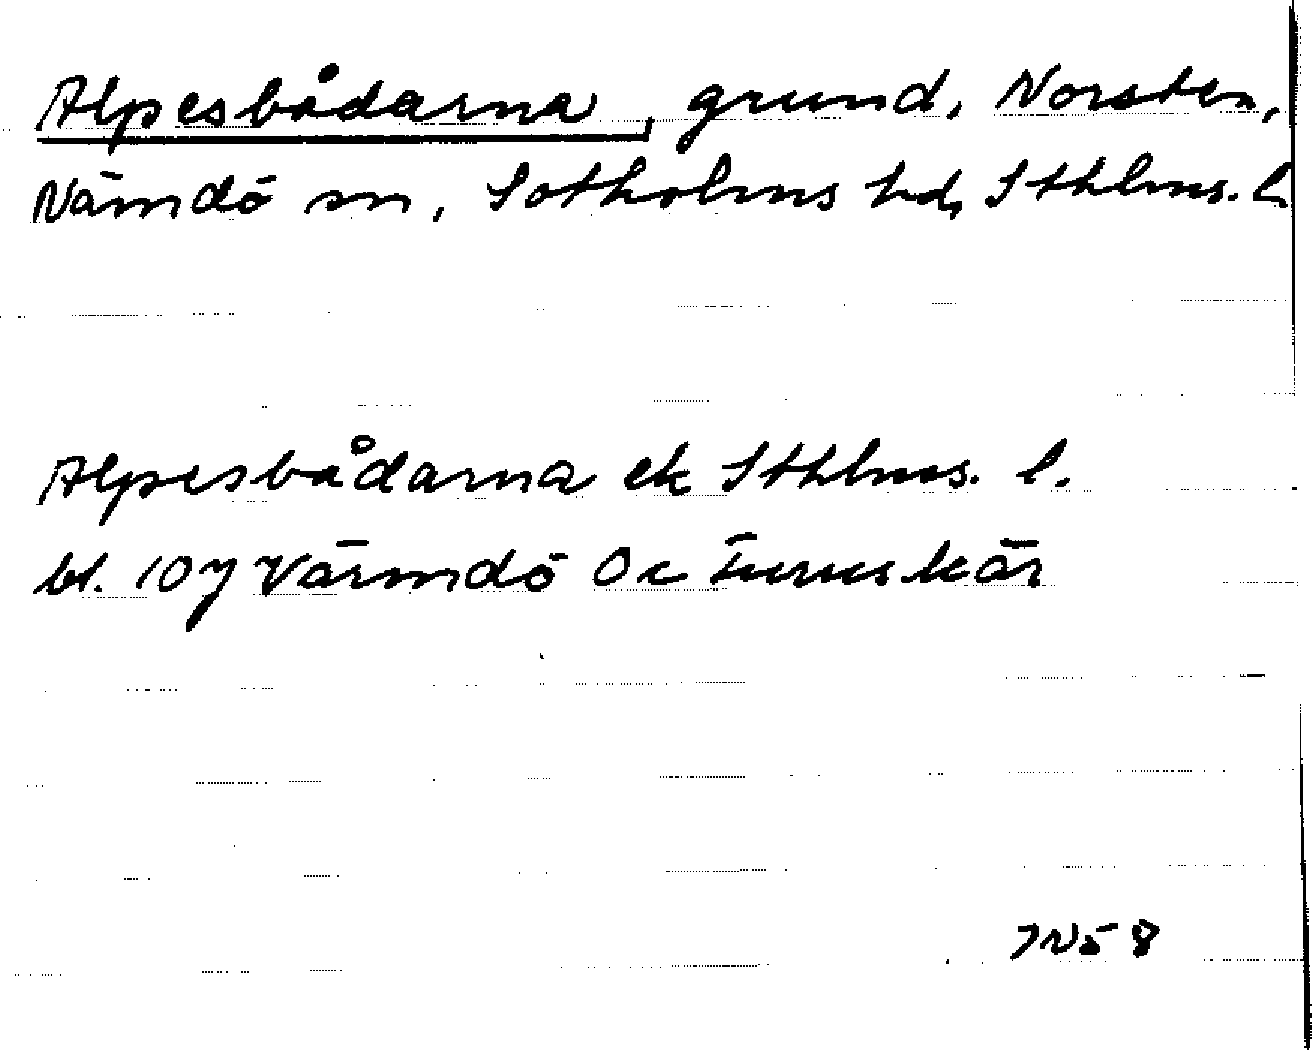 Alpesbådarna, grund, Norsten,
Nämdö sn, Sotholms hd, Sthlms. l.
Alpesbådarna ek Sthlms. l.
bl. 107 Värmdö Oc Furuskär